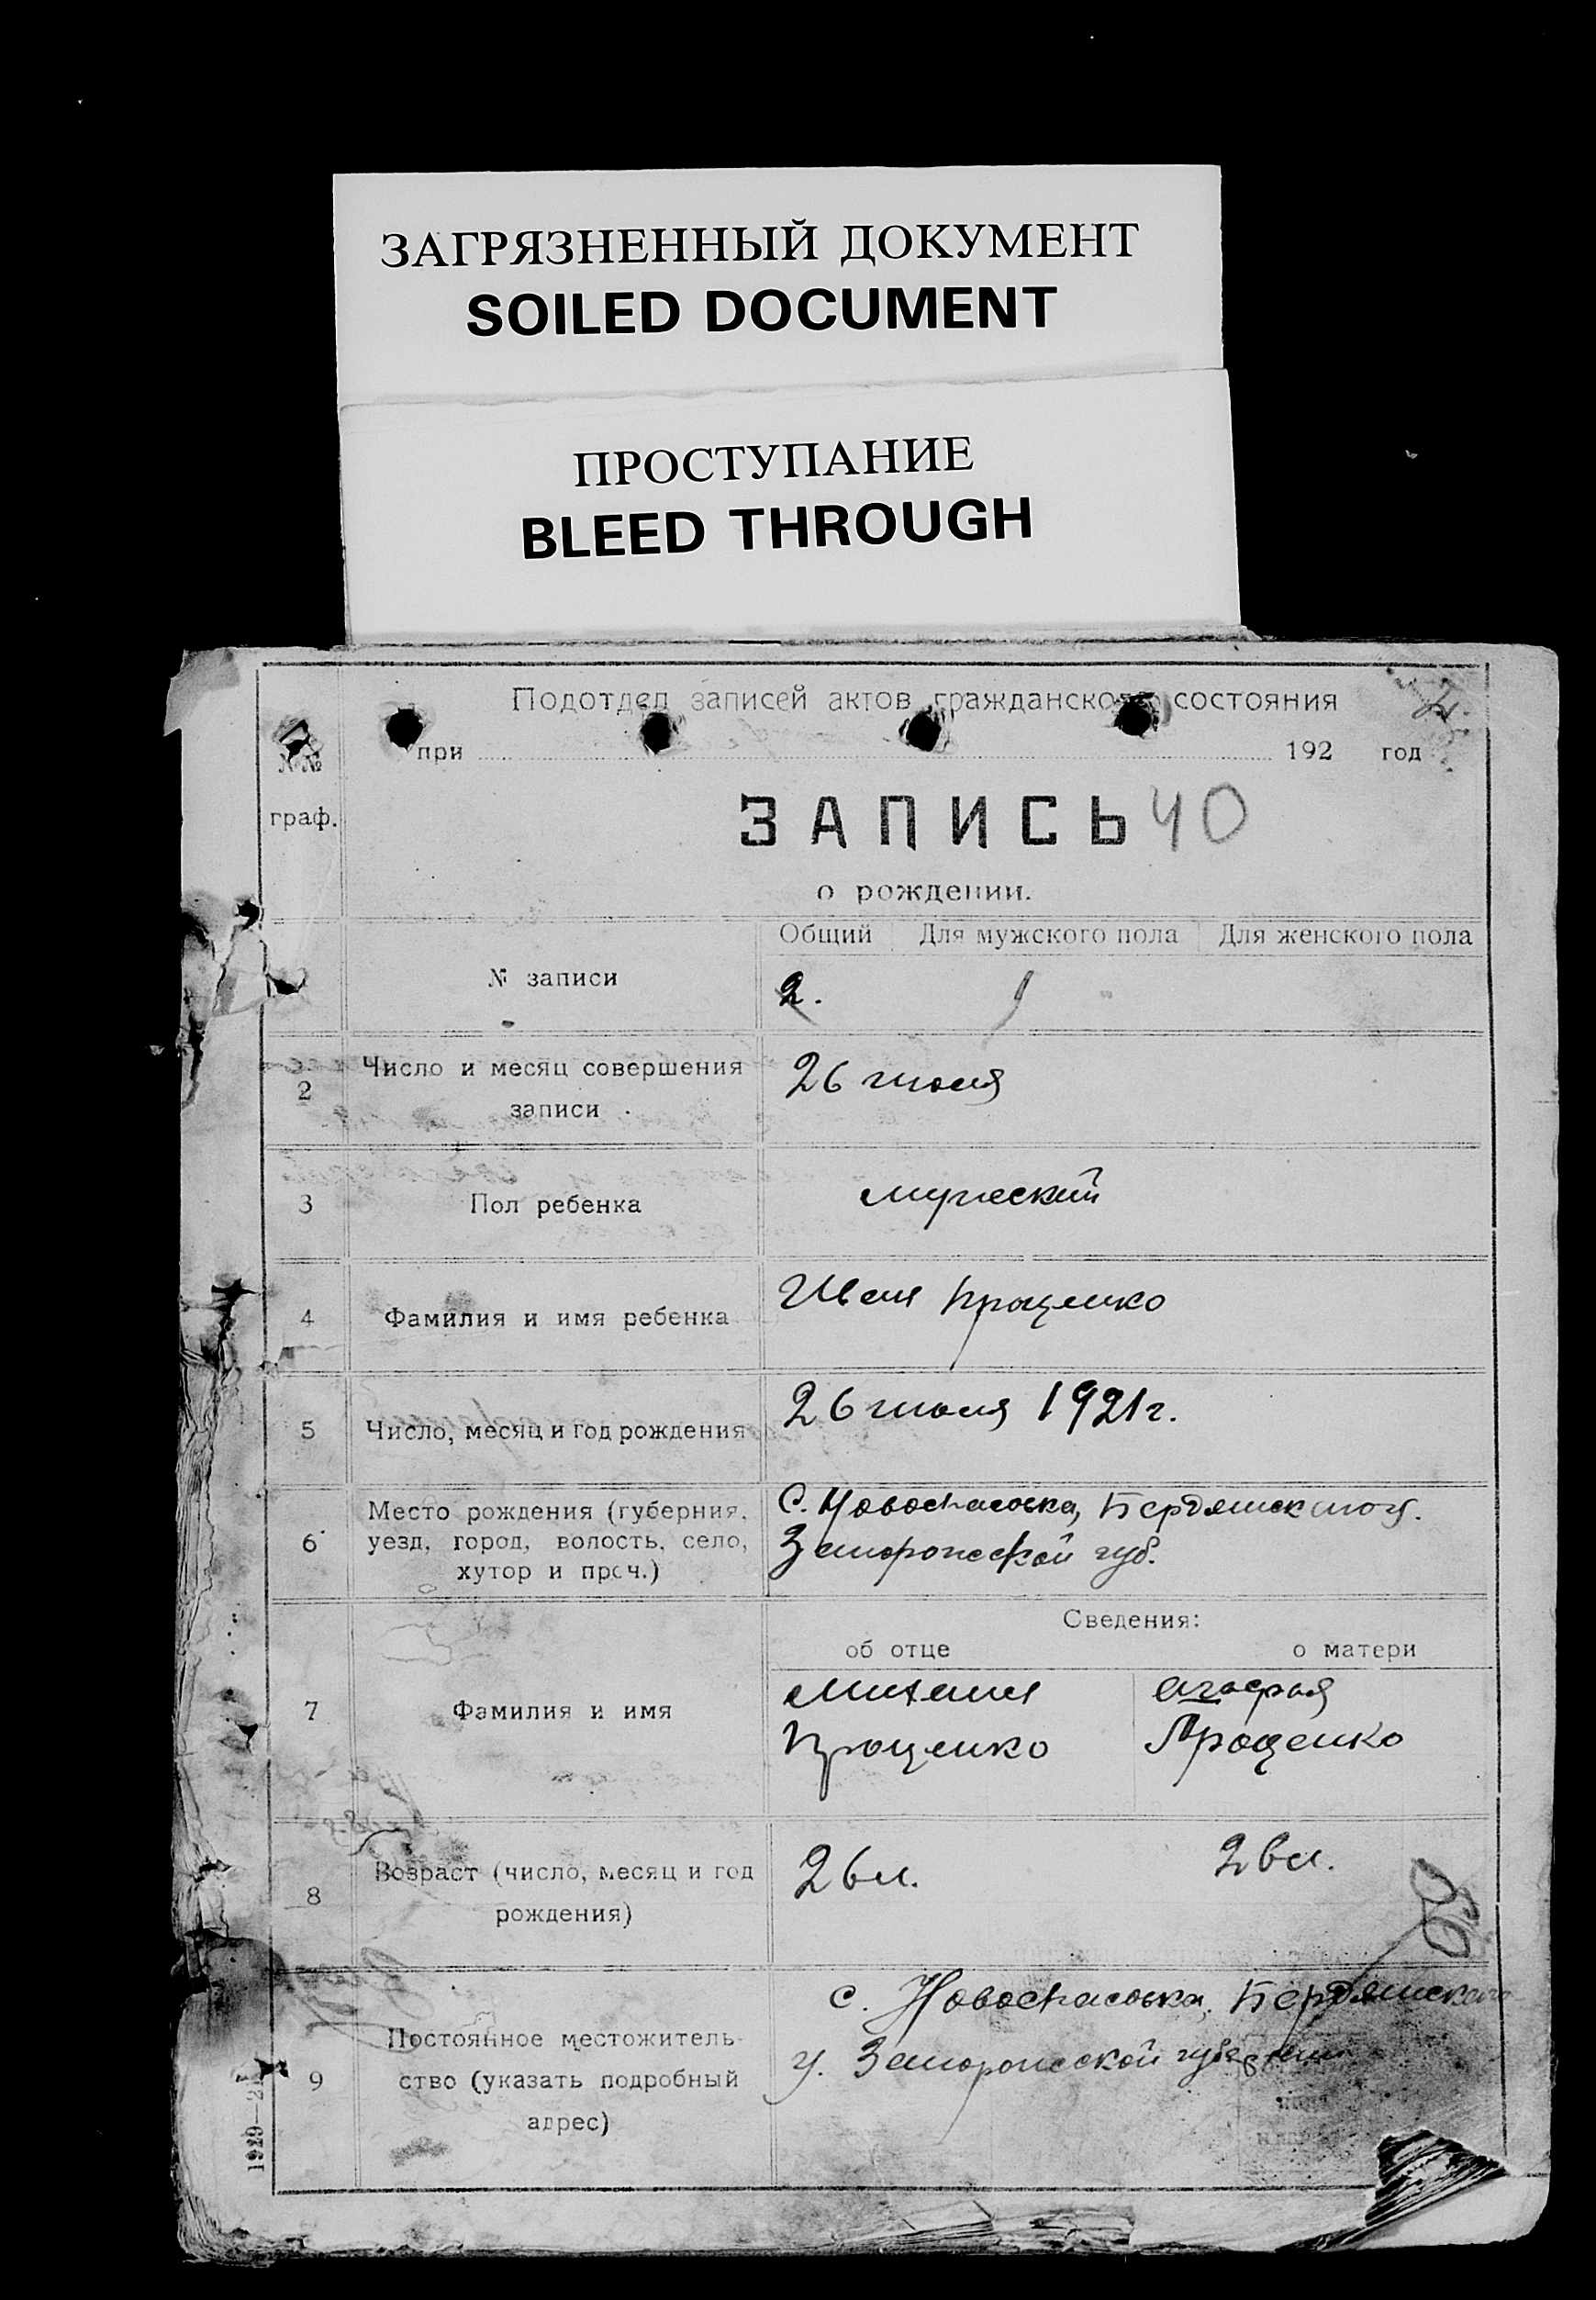 ЗАГРЯЗНЕННЫЙ ДОКУМЕНТ
SOILED DOCUMENT
ПРОСТУПАНИЕ
BLEED THROUGH
Подотдел записей актов гражданского состояния
при 192 год
№№
граф.
ЗАПИСЬ 40
о рождении.
Общий Для мужского пола Для женского пола
№ записи 2. 1
2 Число и месяц совершения
записи
26 июля
3 Пол ребенка мужеский
4 Фамилия и имя ребенка Иван Проценко
5 Число, месяц и год рождения 26 июля 1921 г.
6 Место рождения (губерния,
уезд, город, волость, село,
хутор и проч.)
С. Новоспасовка, Бердянского у.
Запорожской губ.
Сведения:
об отце о матери
7 Фамилия и имя
Михаил Агафья
Проценко Проценко
8 Возраст (число, месяц и год
рождения)
26 л. 26 л.
9 Постоянное местожитель-
ство (указать подробный
адрес)
с. Новоспасовка, Бердянского
у. Запорожской губернии